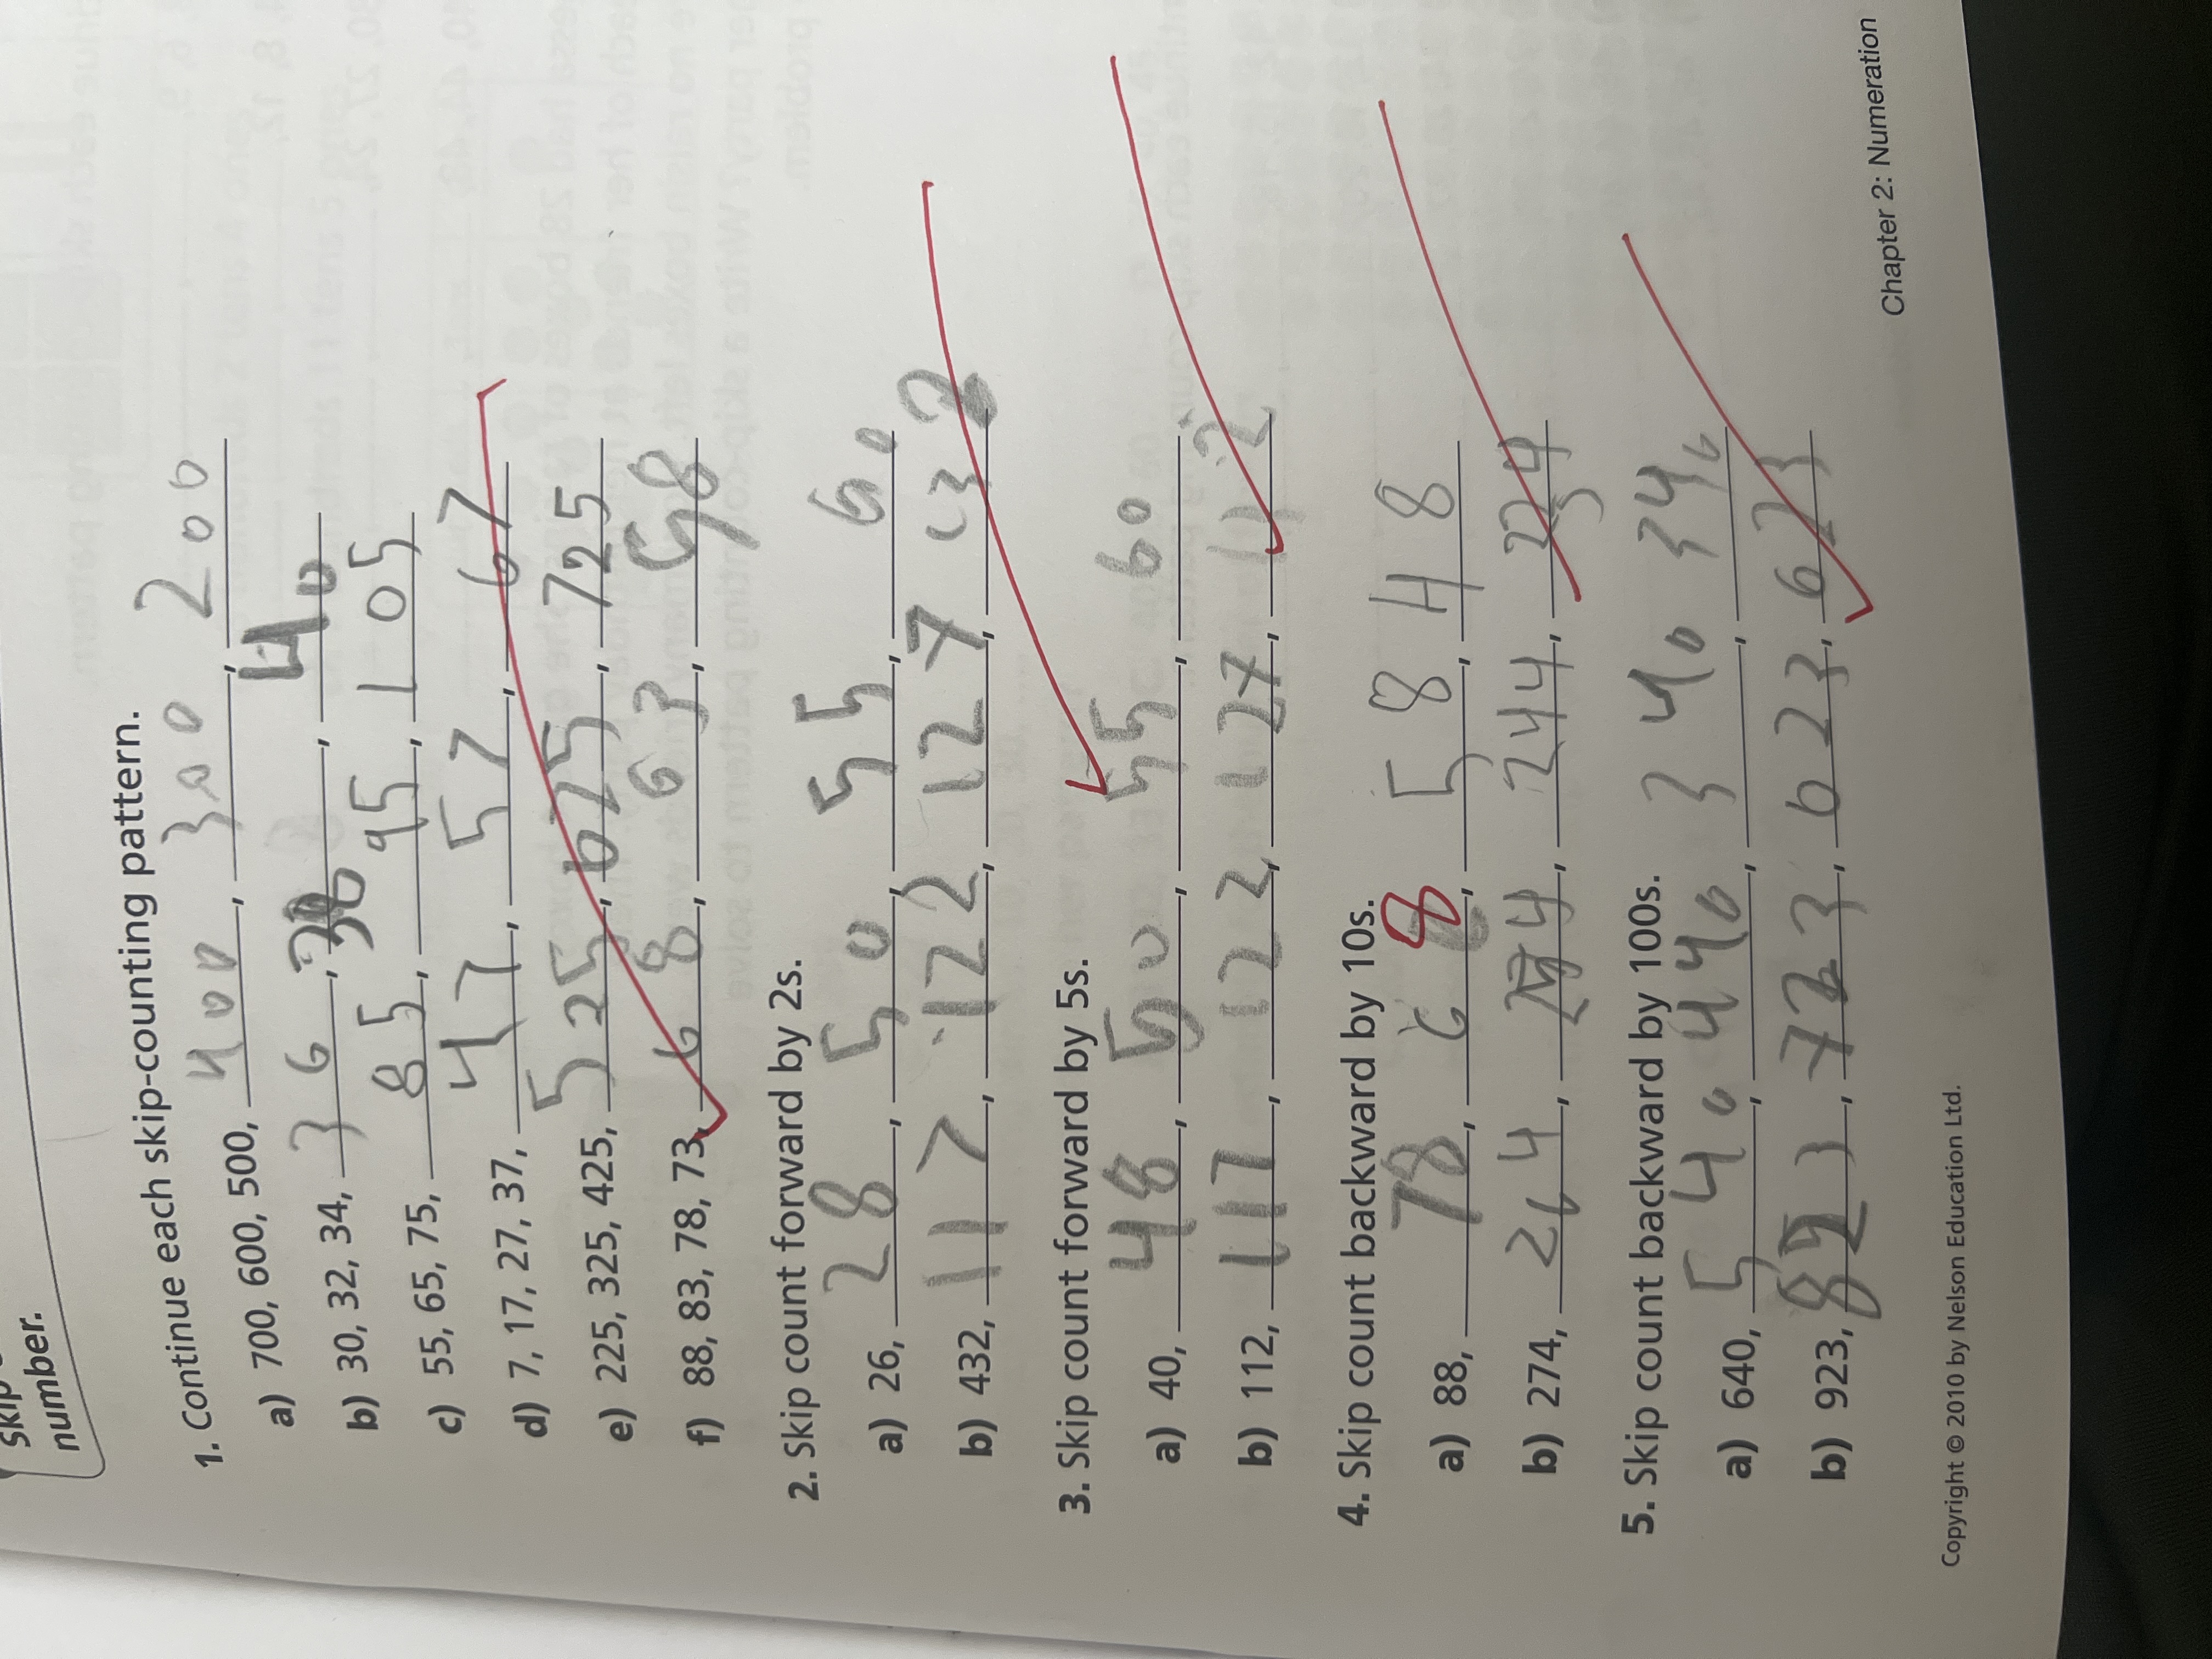 skip
number.
1. Continue each skip-counting pattern.
a) 700, 600, 500, 400, 300, 200
b) 30, 32, 34, 36, 38, 40
c) 55, 65, 75, 85, 95, 105
d) 7, 17, 27, 37, 47, 57, 67
e) 225, 325, 425, 525, 625, 725
f) 88, 83, 78, 73, 68, 63, 58
2. Skip count forward by 2s.
a) 26, 28, 50, 55, 60
b) 432, 117, 122, 127, 132
3. Skip count forward by 5s.
a) 40, 48, 50, 55, 60
b) 112, 117, 122, 127, 112
4. Skip count backward by 10s.
a) 88, 78, 68, 58, 48
b) 274, 264, 244, 234
5. Skip count backward by 100s.
a) 640, 540, 440, 340, 340
b) 923, 823, 723, 623, 623
Copyright © 2010 by Nelson Education Ltd.
Chapter 2: Numeration